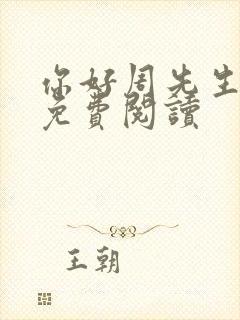 你好周先生
免費閱讀
王朝